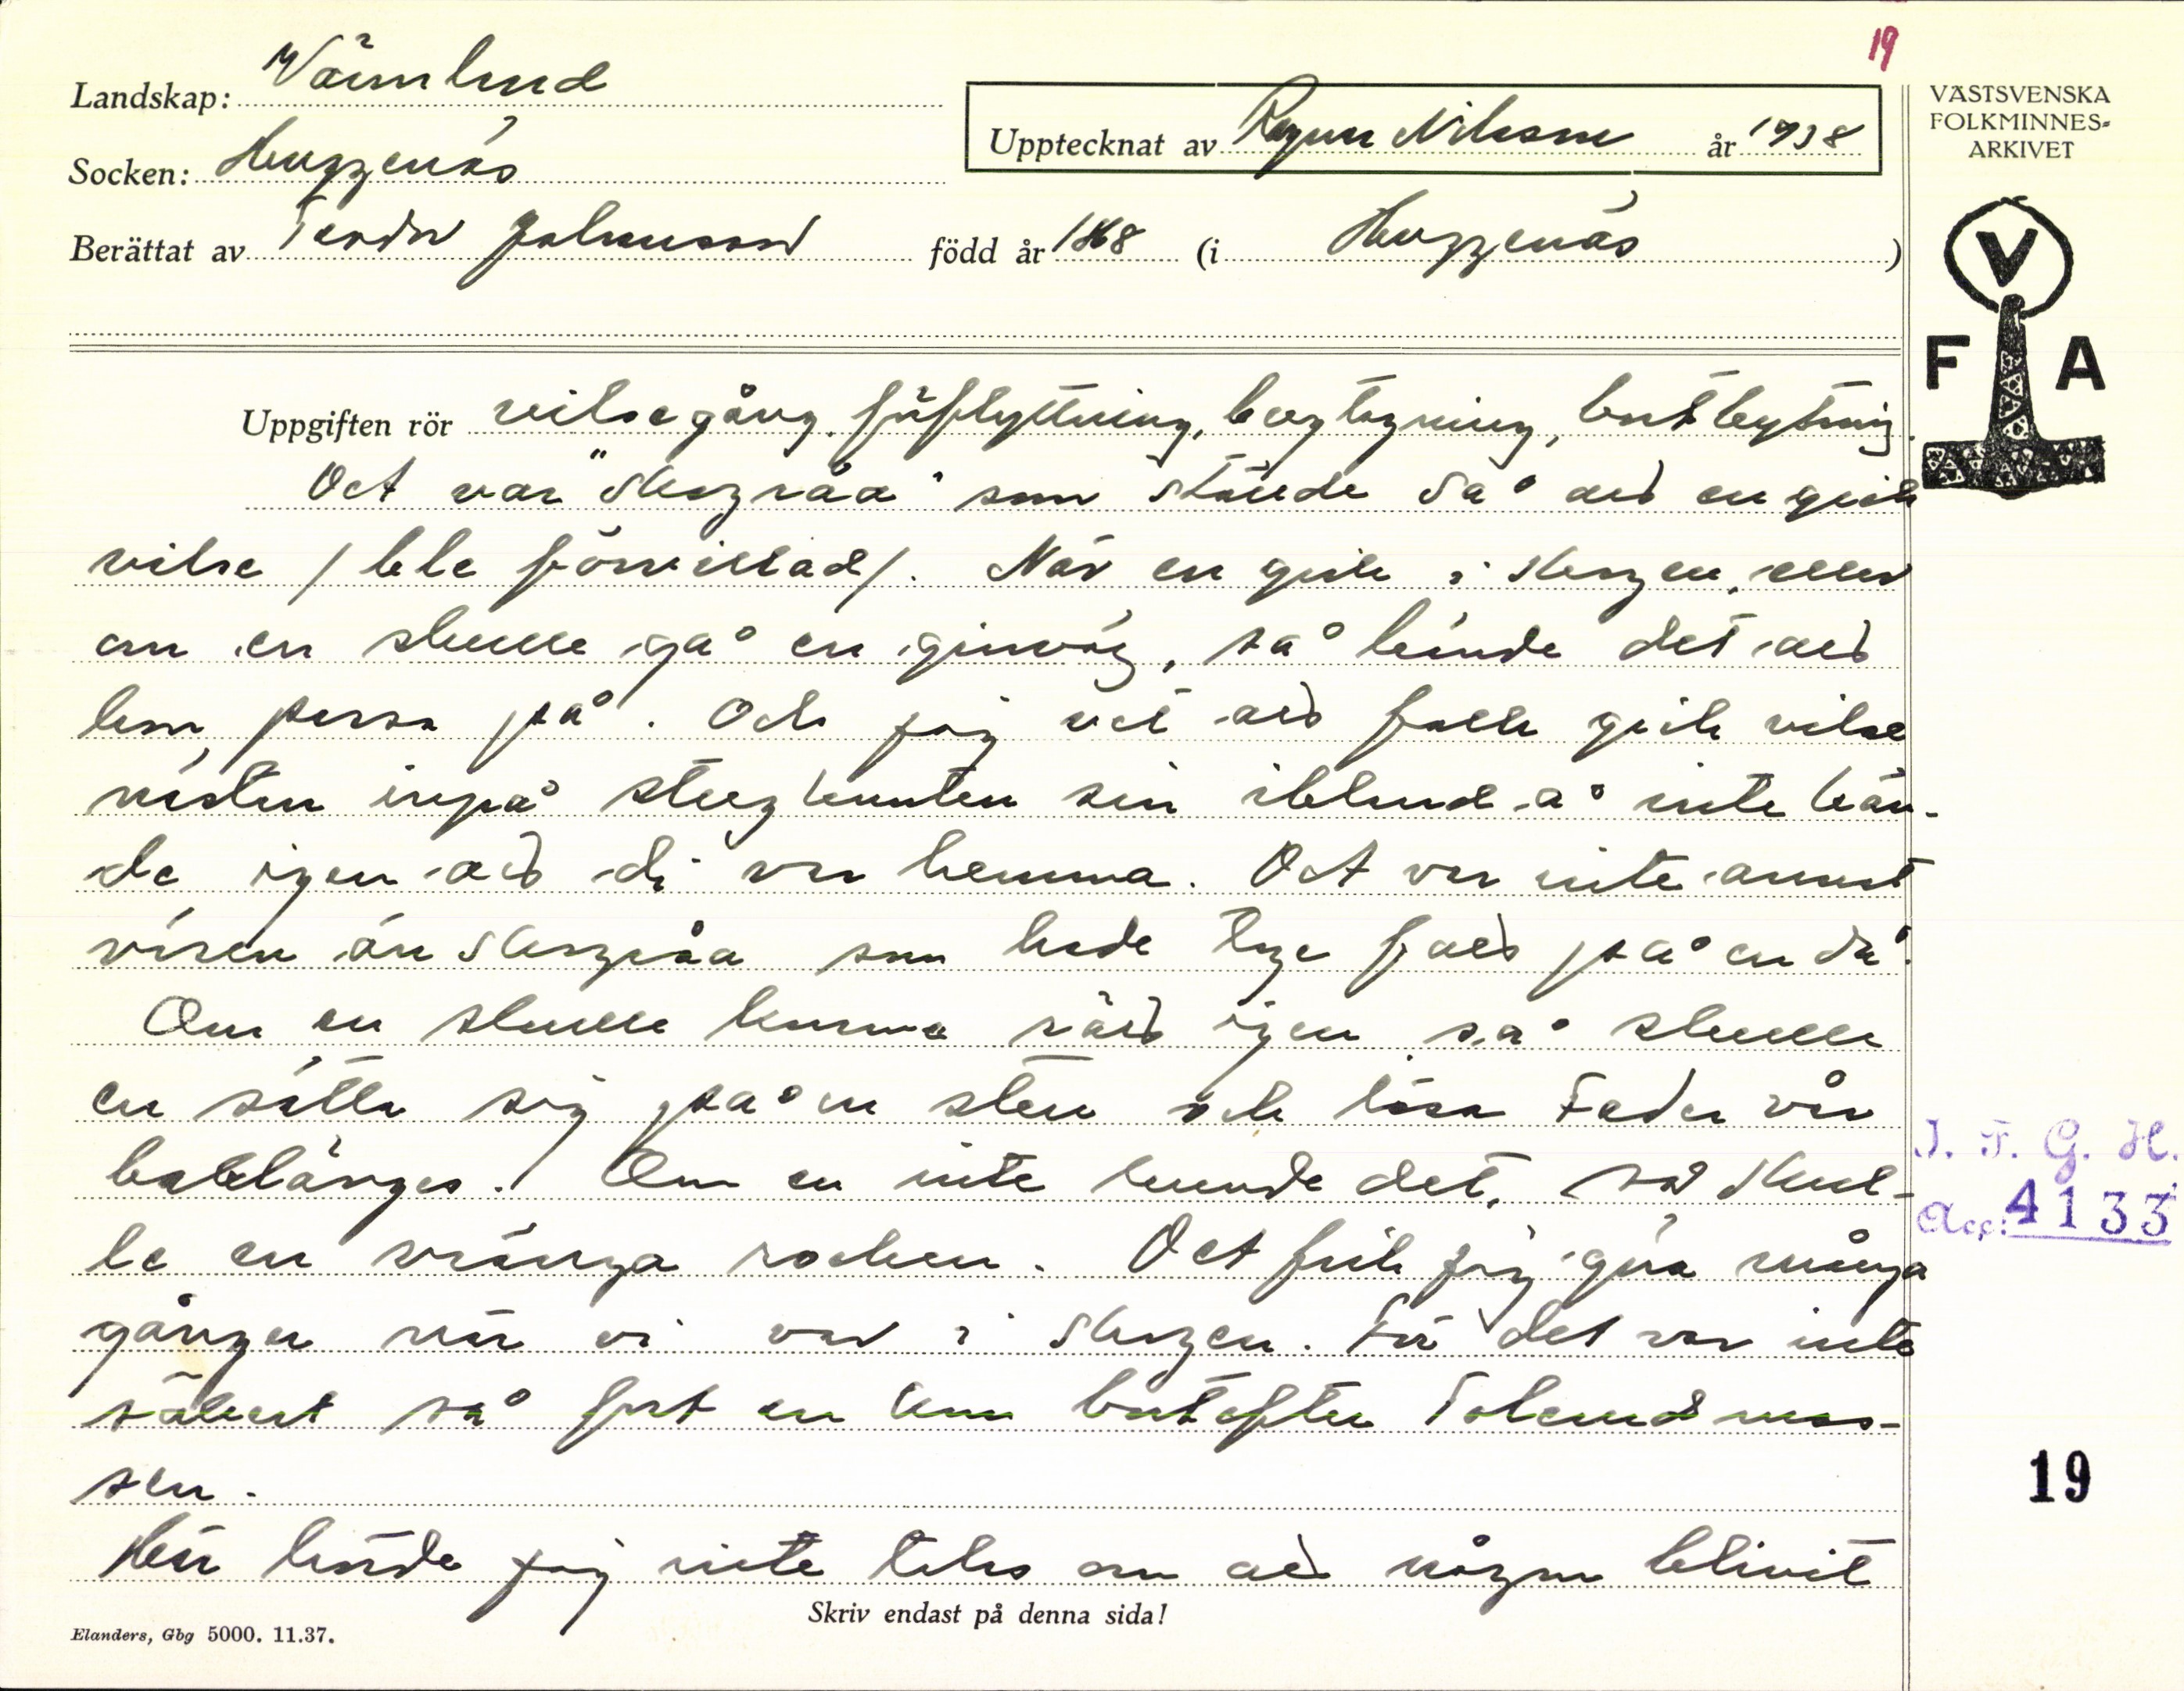 19
Landskap: Värmland
Socken: Huggenäs
Upptecknat av Ragnar Nilsson år 1938
Berättat av Teodor Johansson född år 1868 (i Huggenäs)
VÄSTSVENSKA
FOLKMINNES-
ARKIVET
V
F A
Uppgiften rör vilsegång, förflyttning, bergtagning, bortbytning.
Det var "skogråa" som ställde så ad en gick
vilse /ble förvillad/. När en gick i skogen, eller
om en skulle gå en ginväg, så hände det ad
hon passa på. Och jag vet ad folk gick vilse
nästan inpå stugknuten sin iblann å inte kän-
de igen ad di var hemma. Det var inte annat
väsen än skogråa som hade tage fad på en då.
Om en skulle komma räd igen så skulle
en sätta sig på en sten och läsa Fader vår
baklänges. Om en inte kunde det, så skul-
le en vränga rocken. Det fick jag göra många
gånger när vi var i skogen. För det var inte
säkert så fort en kom bortefter mos-
sen.
Här hörde jag inte talas om ad någon blivit
J. F. G. H.
Acc: 4133
19
Skriv endast på denna sida!
Elanders, Gbg 5000. 11.37.